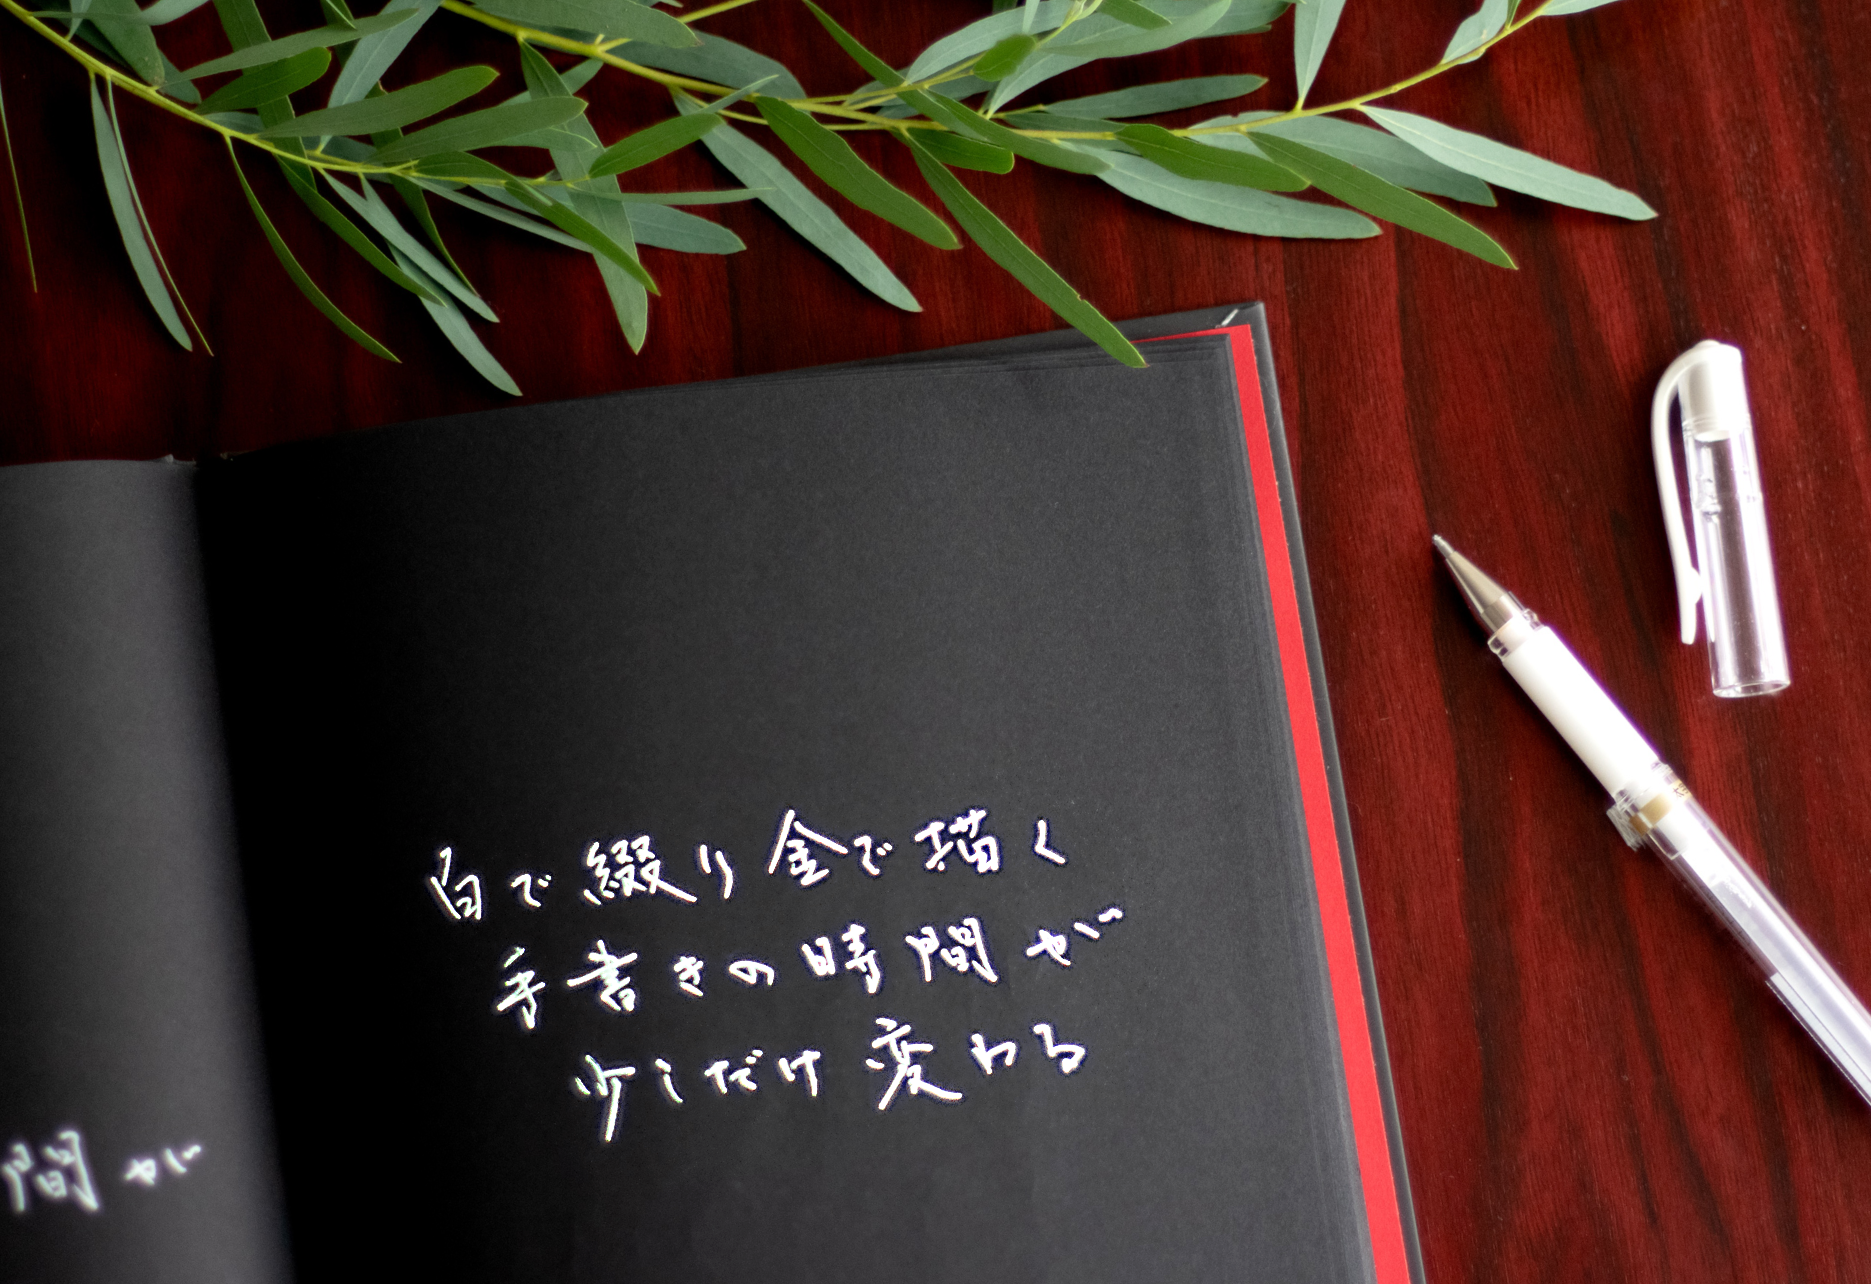 白で綴り金で描く
手書きの時間が
少しだけ変わる
間が